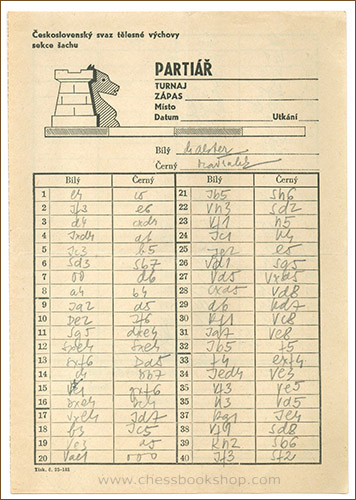 Československý svaz tělesné výchovy
sekce šachu
PARTIÁŘ
TURNAJ
ZÁPAS
Místo
Datum Utkání
Bílý
Černý
Bílý Černý Bílý Černý
1 e4 c5 21 Jb5 Sh6
2 Jf3 e6 22 Vh3 Sd2
3 d4 cxd4 23 h5
4 Jxd4 a6 24 Jc1
5 Jc3 b5 25 e5
6 Sd3 Sb7 26 Vd1 Sg5
7 00 d6 27 Vd5 Vxd5
8 a4 b4 28 cxd5 Vd8
9 Ja2 d5 29 d6 Kd7
10 De2 Jf6 30 Kf1 Vc8
11 Sg5 dxe4 31 Ve8
12 Sxe4 Sxe4 32 Jb5 f5
13 Sxf6 Dd5 33 f4 exf4
14 34 Ve3
15 gxf6 35 Kf3 Ve5
16 36 h3 Vd5
17 Vxe4 Jd7 37 Kg1 Je4
18 b3 Jc5 38 Sd8
19 Ve3 a5 39 Kh2 Sb6
20 Vae1 000 40 Jf3 Sf2
Tisk. č. 25-152
www.chessbookshop.com